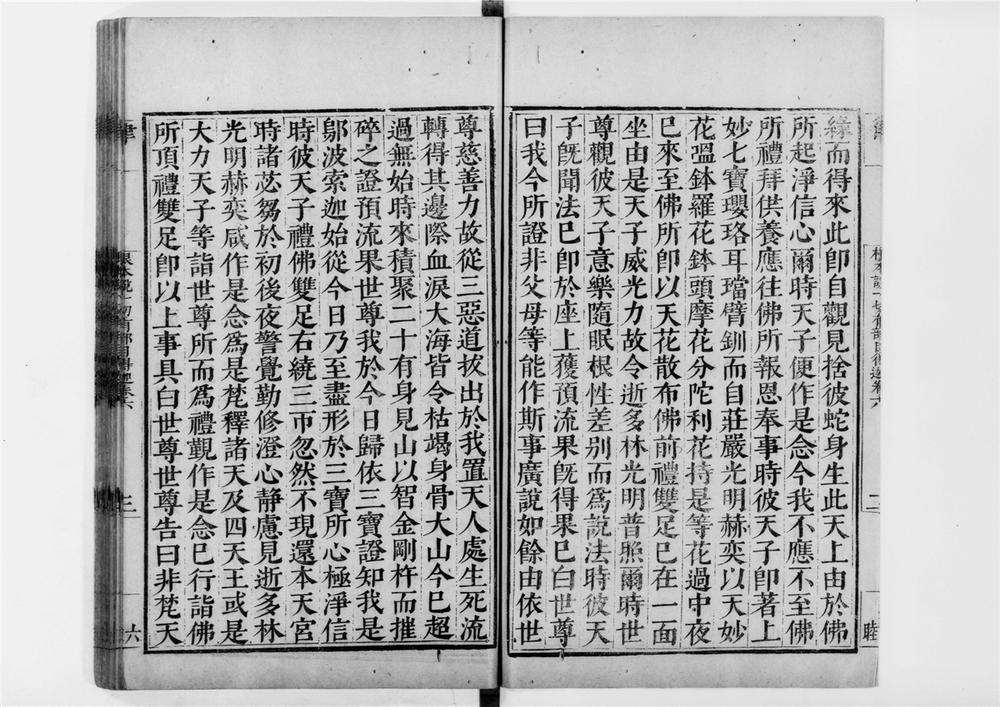 緣而得來此卽自觀見捨彼蛇身生此天上由於佛
所起淨信心爾時天子便作是念今我不應不至佛
所禮拜供養應往佛所報恩奉事時彼天子卽著上
妙七寶瓔珞耳璫臂釧而自莊嚴光明赫奕以天妙
花嗢鉢羅花鉢頭摩花分陀利花持是等花過中夜
已來至佛所卽以天花散布佛前禮雙足已在一面
坐由是天子威光力故令逝多林光明普照爾時世
尊觀彼天子意樂隨眠根性差别而爲說法時彼天
子旣聞法已卽於座上獲預流果旣得果已白世尊
曰我今所證非父母等能作斯事廣說如餘由依世
二
睦
尊慈善力故從三惡道拔出於我置天人處生死流
轉得其邊際血淚大海皆令枯竭身骨大山今已超
過無始時來積聚二十有身見山以智金剛杵而摧
碎之證預流果世尊我於今日歸依三寶證知我是
鄔波索迦始從今日乃至盡形於三寶所心極淨信
時彼天子禮佛雙足右繞三帀忽然不現還本天宮
時諸苾芻於初後夜警覺勤修澄心靜慮見逝多林
光明赫奕咸作是念爲是梵釋諸天及四天王或是
大力天子等詣世尊所而爲禮覲作是念已行詣佛
所頂禮雙足卽以上事具白世尊世尊告曰非梵天
三
六